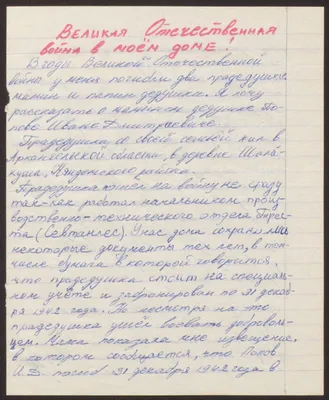 Великая Отечественная
война в моём доме.
В годы Великой Отечественной
войны у меня погибли два прадедушки,
мамин и папин дедушки. Я хочу
рассказать о мамином дедушке По-
пове Иване Дмитриевиче.
Прадедушка со своей семьёй жил в
Архангельской области, в деревне Шала-
куша, Няндомского района.
Прадедушка пошёл на войну не сразу
так-как работал начальником произ-
водственно-технического отдела Трес-
та (Севтранлес). У нас дома сохранились
некоторые документы тех лет, в том
числе бумага в которой говорится,
что прадедушка стоит на специаль-
ном учёте и забронирован по 31 декаб-
ря 1942 года. Но несмотря на это
прадедушка ушёл воевать доброволь-
цем. Мама показала мне извещение,
в котором сообщается, что Попов
И.Д. погиб 31 декабря 1942 года в